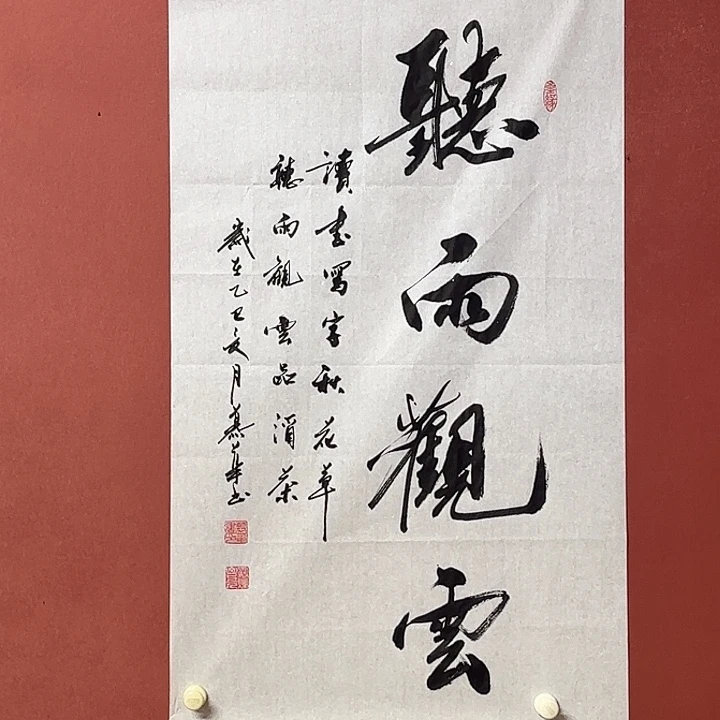 聽雨觀雲
讀書寫字秋花草
聽雨觀雲品清茶
歲在乙巳亥月慕華書